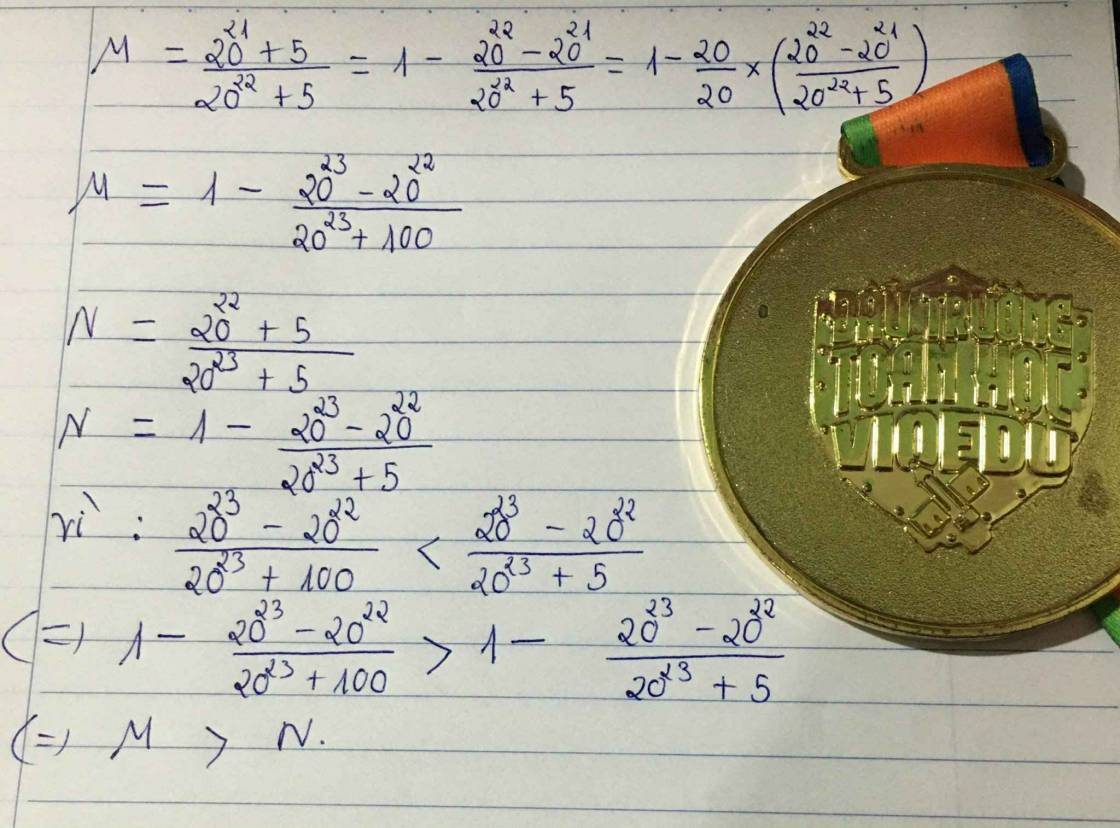 M = (20^21 + 5)/(20^22 + 5) = 1 - (20^22 - 20^21)/(20^22 + 5) = 1 - 20/20 × ((20^22 - 20^21)/(20^22 + 5))
M = 1 - (20^23 - 20^22)/(20^23 + 100)
N = (20^22 + 5)/(20^23 + 5)
N = 1 - (20^23 - 20^22)/(20^23 + 5)
vì : (20^23 - 20^22)/(20^23 + 100) < (20^23 - 20^22)/(20^23 + 5)
(=) 1 - (20^23 - 20^22)/(20^23 + 100) > 1 - (20^23 - 20^22)/(20^23 + 5)
(=) M > N.
ĐẤU TRƯỜNG
TOÁN HỌC
VIOEDU